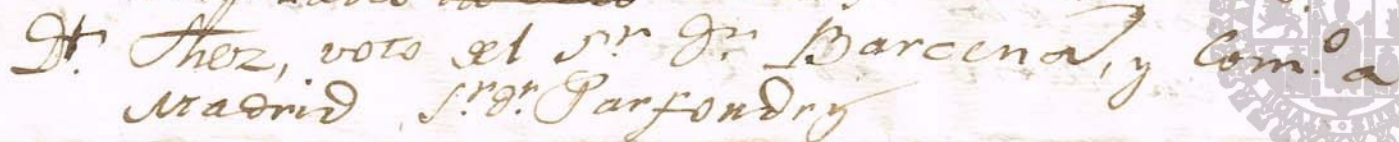 Dr. Shez, voto el Sr. Dr. Barcena, y Com.o a
Madrid Sr. Dr. Parfondry